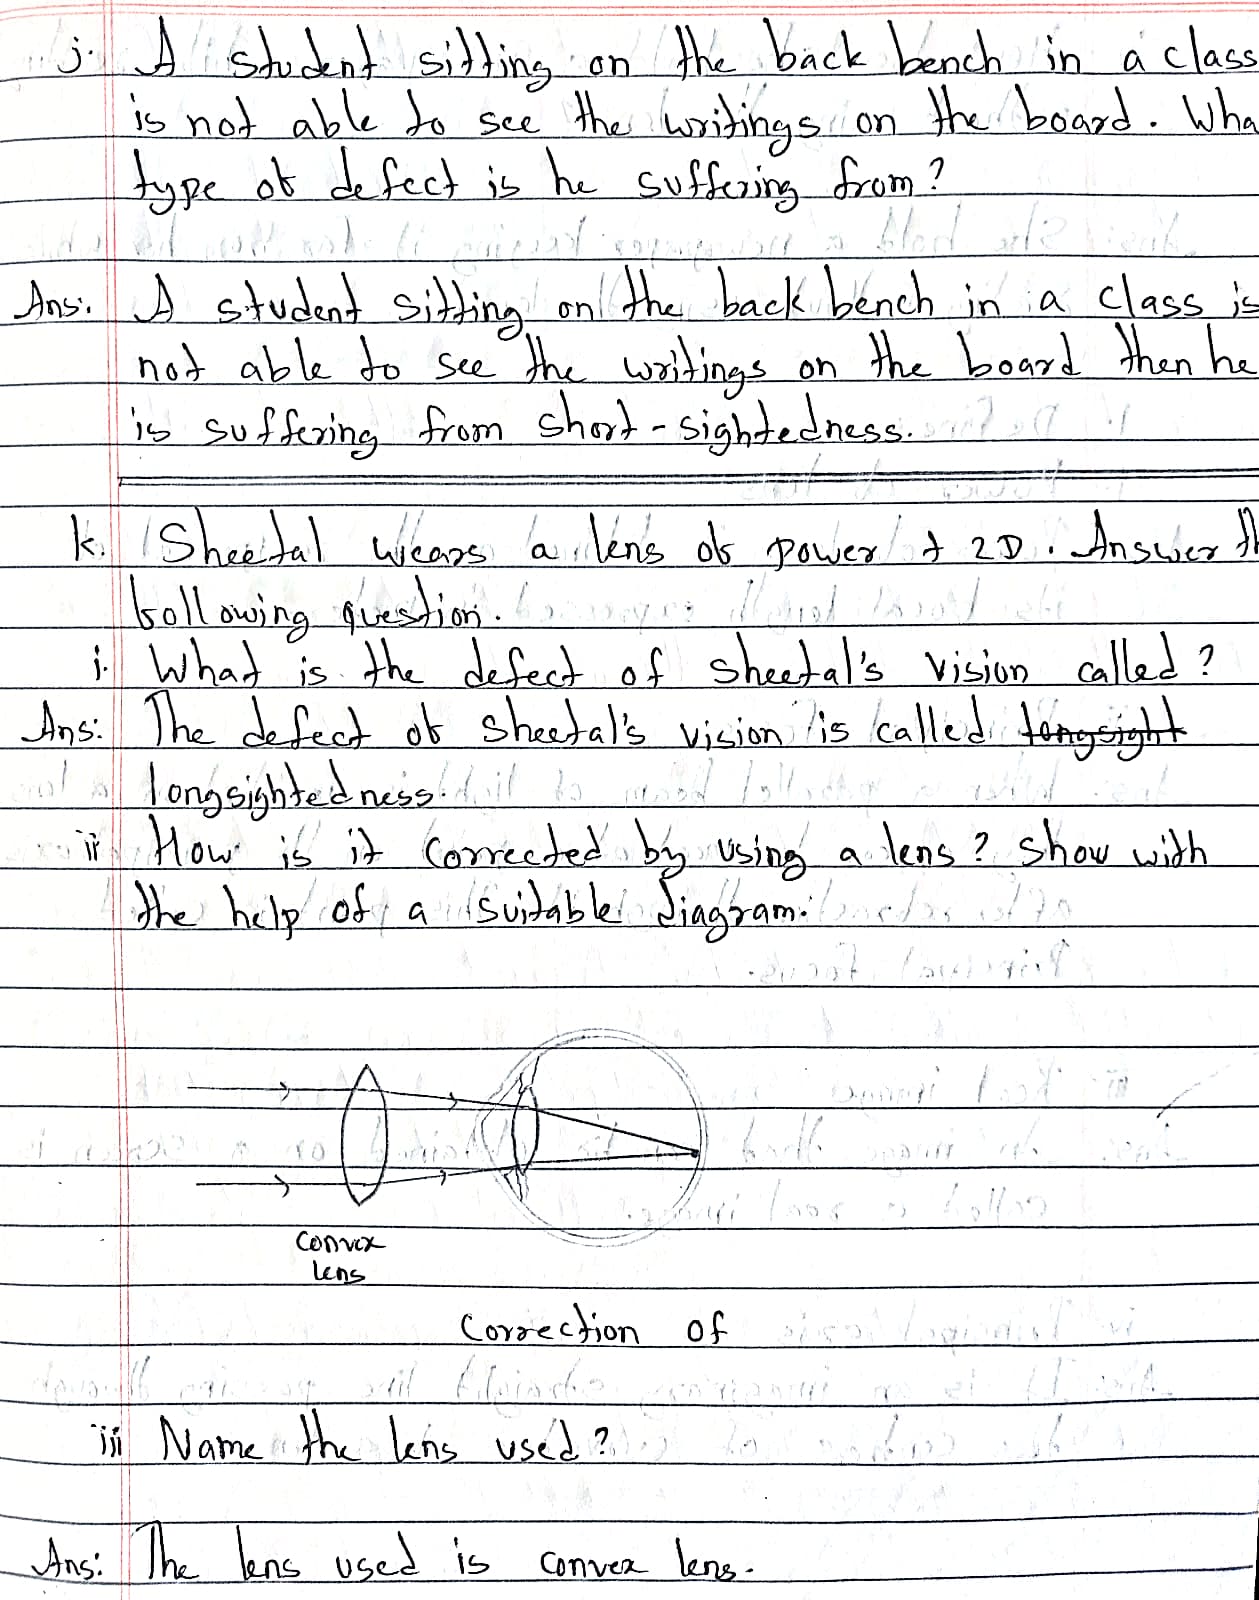 j. A student sitting on the back bench in a class
is not able to see the writings on the board. Wha
type of defect is he suffering from?
Ans: A student sitting on the back bench in a class is
not able to see the writings on the board then he
is suffering from short-sightedness.
k. Sheetal wears a lens of power + 2D. Answer th
following question.
i. What is the defect of sheetal's vision called?
Ans: The defect of sheetal's vision is called longsight
longsightedness.
ii How is it corrected by using a lens? show with
the help of a suitable diagram.
convex
lens
Correction of
iii Name the lens used?
Ans: The lens used is convex lens.